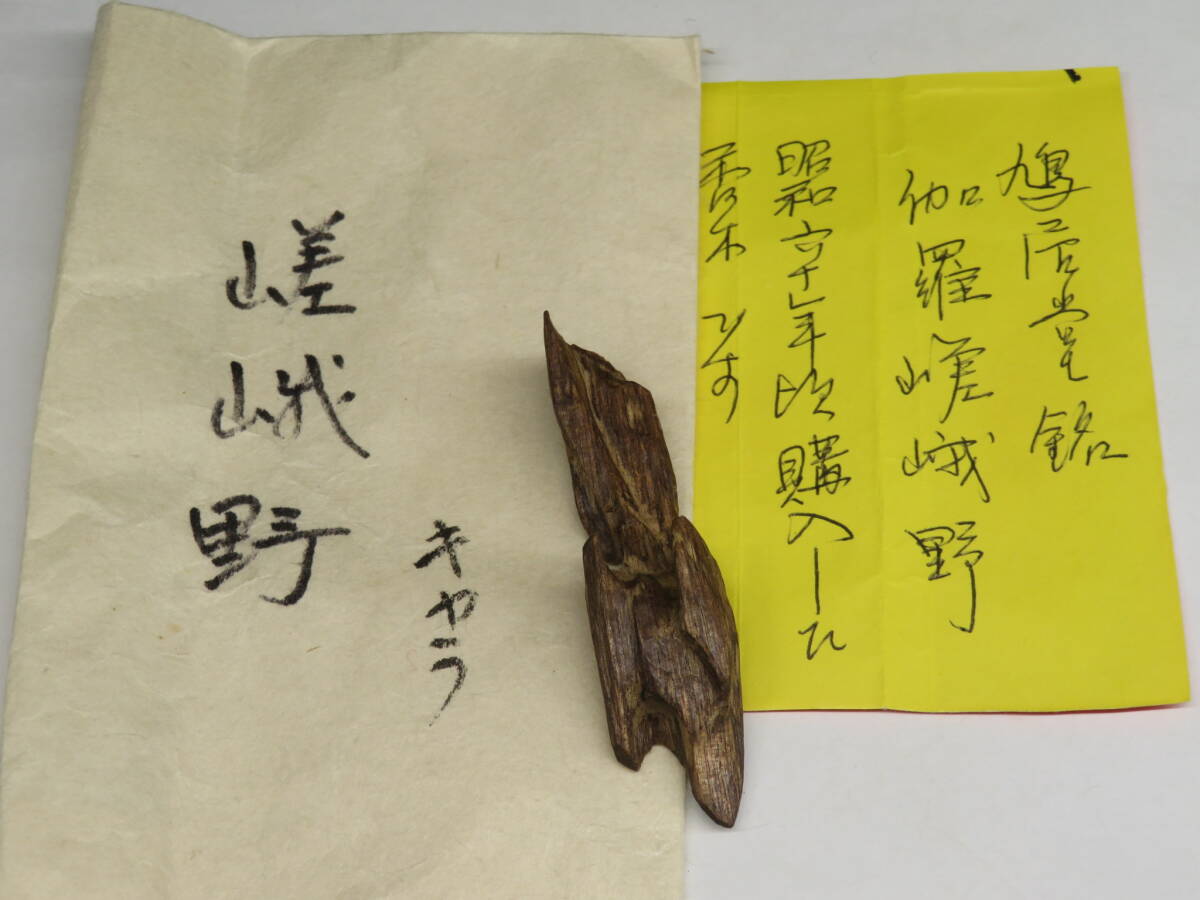 鳩居堂銘
伽羅嵯峨野
昭和六十年頃購入した
香木です
キャラ
嵯峨野